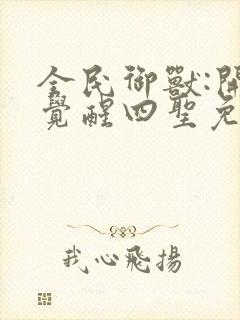 全民御獸:開
覺醒四聖
我心飛揚